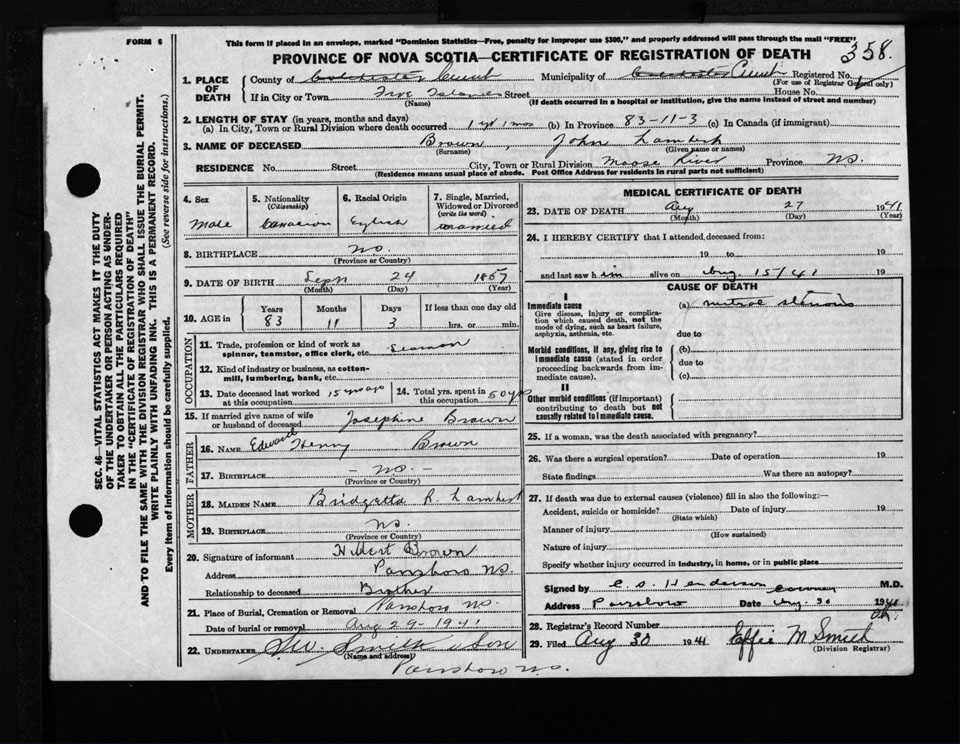 FORM 6
This form if placed in an envelope, marked "Dominion Statistics—Free, penalty for improper use $300," and properly addressed will pass through the mail "FREE"
358.
PROVINCE OF NOVA SCOTIA—CERTIFICATE OF REGISTRATION OF DEATH
SEC. 46—VITAL STATISTICS ACT MAKES IT THE DUTY OF THE UNDERTAKER OR PERSON ACTING AS UNDERTAKER TO OBTAIN ALL THE PARTICULARS REQUIRED IN THE "CERTIFICATE OF REGISTRATION OF DEATH" AND TO FILE THE SAME WITH THE DIVISION REGISTRAR WHO SHALL ISSUE THE BURIAL PERMIT.
WRITE PLAINLY WITH UNFADING INK. THIS IS A PERMANENT RECORD.
Every item of information should be carefully supplied. (See reverse side for instructions.)
1. PLACE OF DEATH County of Colchester County Municipality of Colchester County Registered No.
(For use of Registrar General only)
If in City or Town Five Islands Street House No.
(Name) (If death occurred in a hospital or institution, give the name instead of street and number)
2. LENGTH OF STAY (in years, months and days)
(a) In City, Town or Rural Division where death occurred 1 yr 1 mos (b) In Province 83-11-3 (c) In Canada (if immigrant)
3. NAME OF DECEASED Brown, John Lambert
(Surname) (Given name or names)
RESIDENCE No. Street City, Town or Rural Division Moose River Province N.S.
(Residence means usual place of abode. Post Office Address for residents in rural parts not sufficient)
4. Sex Male
5. Nationality (Citizenship) Canadian
6. Racial Origin English
7. Single, Married, Widowed or Divorced (write the word) married
8. BIRTHPLACE N.S.
(Province or Country)
9. DATE OF BIRTH Sept 24 1857
(Month) (Day) (Year)
10. AGE in Years 83 Months 11 Days 3 If less than one day old hrs. or min.
OCCUPATION
11. Trade, profession or kind of work as spinner, teamster, office clerk, etc. Seaman
12. Kind of industry or business, as cotton-mill, lumbering, bank, etc.
13. Date deceased last worked at this occupation 15 yrs ago
14. Total yrs. spent in this occupation 50 yrs
15. If married give name of wife or husband of deceased Josephine Brown
FATHER
16. NAME Edward Henry Brown
17. BIRTHPLACE - N.S. -
(Province or Country)
MOTHER
18. MAIDEN NAME Bridgetta R. Lambert
19. BIRTHPLACE N.S.
(Province or Country)
20. Signature of informant Brown
Address Parrsboro N.S.
Relationship to deceased Brother
21. Place of Burial, Cremation or Removal Parrsboro N.S.
Date of burial or removal Aug 29-1941
22. UNDERTAKER Smith & Son
(Name and address)
Parrsboro N.S.
MEDICAL CERTIFICATE OF DEATH
23. DATE OF DEATH Aug 27 1941
(Month) (Day) (Year)
24. I HEREBY CERTIFY that I attended deceased from:
19 to 19
and last saw him alive on Aug. 15/41 19
CAUSE OF DEATH
I
Immediate cause (a) mitral stenosis
Give disease, injury or complication which caused death, not the mode of dying, such as heart failure, asphyxia, asthenia, etc.
due to
Morbid conditions, if any, giving rise to immediate cause (stated in order proceeding backwards from immediate cause).
(b)
due to
(c)
II
Other morbid conditions (if important) contributing to death but not causally related to immediate cause.
25. If a woman, was the death associated with pregnancy?
26. Was there a surgical operation? Date of operation 19
State findings Was there an autopsy?
27. If death was due to external causes (violence) fill in also the following:—
Accident, suicide or homicide? Date of injury 19
(State which)
Manner of injury
(How sustained)
Nature of injury
Specify whether injury occurred in industry, in home, or in public place
Signed by C. S. Henderson M.D.
Address Parrsboro Date Aug 30 1941
28. Registrar's Record Number
29. Filed Aug 30 1941 Effie M Smith
(Division Registrar)